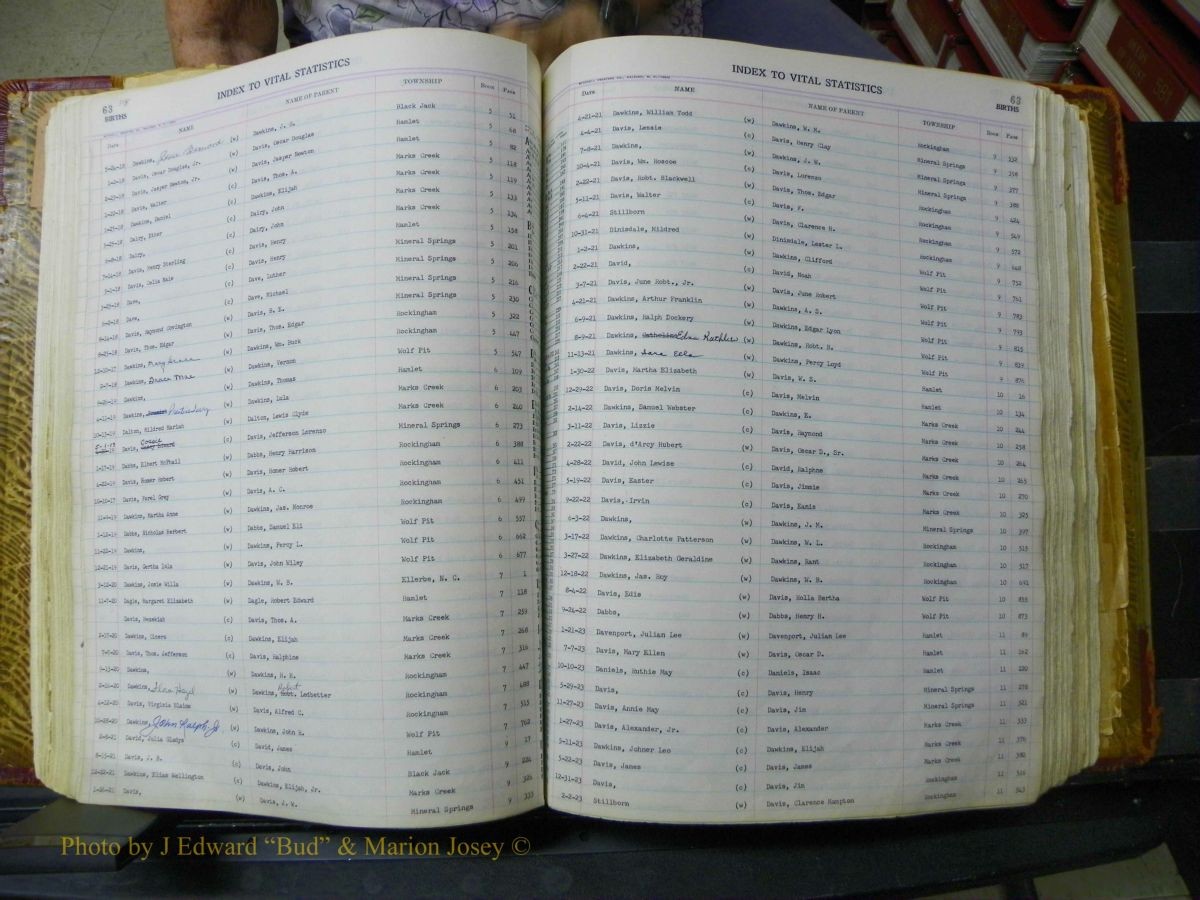 63
BIRTHS
INDEX TO VITAL STATISTICS
Date NAME NAME OF PARENT TOWNSHIP Book Page
Dawkins, (w) Dawkins, J. S. Black Jack 5 51
Davis, Oscar Douglas, Jr. (w) Davis, Oscar Douglas Hamlet 5 68
Davis, Jasper Newton, Jr. (w) Davis, Jasper Newton Hamlet 5 82
Davis, Walter (c) Davis, Thos. A. Marks Creek 5 118
Dawkins, Daniel (c) Dawkins, Elijah Marks Creek 5 119
Dairy, Ether (c) Dairy, John Marks Creek 5 133
Dairy, (c) Dairy, John Marks Creek 5 134
Davis, Henry Sterling (c) Davis, Henry Hamlet 5 158
Davis, Julia Kale (c) Davis, Henry Mineral Springs 5 201
Dave, (c) Dave, Luther Mineral Springs 5 206
Dave, (c) Dave, Michael Mineral Springs 5 216
Davis, Raymond Covington (w) Davis, B. E. Mineral Springs 5 230
Davis, Thos. Edgar (w) Davis, Thos. Edgar Rockingham 5 322
Dawkins, Mary Grace (w) Dawkins, Wm. Buck Rockingham 5 447
Dawkins, Grace Mae (w) Dawkins, Vernon Wolf Pit 5 547
Dawkins, (w) Dawkins, Thomas Hamlet 6 109
Dawkins, Dawkins, Lula Marks Creek 6 203
Dalton, Mildred Mariah (w) Dalton, Lewis Clyde Marks Creek 6 240
Davis, (c) Davis, Jefferson Lorenzo Mineral Springs 6 273
Dabbs, Elbert McPhail (w) Dabbs, Henry Harrison Rockingham 6 388
Davis, Homer Robert (w) Davis, Homer Robert Rockingham 6 411
Davis, Ferel Grey (w) Davis, A. C. Rockingham 6 451
Dawkins, Martha Anne (w) Dawkins, Jas. Monroe Rockingham 6 499
Dabbs, Nicholas Herbert (w) Dabbs, Samuel Eli Wolf Pit 6 557
Dawkins, (w) Dawkins, Percy L. Wolf Pit 6 662
Davis, Gertha Lula (w) Davis, John Wiley Wolf Pit 6 677
Dawkins, Josie Willa (w) Dawkins, W. B. Ellerbe, N. C. 7 1
11-7-20 Dagle, Margaret Elizabeth (w) Dagle, Robert Edward Hamlet 7 118
Davis, Hezekiah (c) Davis, Thos. A. Marks Creek 7 259
Dawkins, Cicero (c) Dawkins, Elijah Marks Creek 7 268
Davis, Thos. Jefferson (c) Davis, Ralphine Marks Creek 7 316
Dawkins, (w) Dawkins, H. H. Rockingham 7 447
Dawkins, (w) Dawkins, Robt. Ledbetter Rockingham 7 488
Davis, Virginia Elaine (w) Davis, Alfred C. Rockingham 7 515
Dawkins, John Ralph, Jr (w) Dawkins, John R. Wolf Pit 7 762
David, Julia Gladys (c) David, James Hamlet 9 17
Davis, J. B. (c) Davis, John Black Jack 9 224
Dawkins, Elias Wellington (c) Dawkins, Elijah, Jr. Marks Creek 9 325
Davis, (w) Davis, J. W. Mineral Springs 9 333
INDEX TO VITAL STATISTICS
63
BIRTHS
Date NAME NAME OF PARENT TOWNSHIP Book Page
4-21-21 Dawkins, William Todd (w) Dawkins, W. H. Rockingham 9 332
4-4-21 Davis, Lessie (c) Davis, Henry Clay Mineral Springs 9 358
7-8-21 Dawkins, (w) Dawkins, J. W. Mineral Springs 9 377
10-4-21 Davis, Wm. Roscoe (c) Davis, Lorenzo Mineral Springs 9 388
2-22-21 Davis, Robt. Blackwell (w) Davis, Thos. Edgar Rockingham 9 424
5-11-21 Davis, Walter (c) Davis, F. Rockingham 9 549
6-6-21 Stillborn (w) Davis, Clarence H. Rockingham 9 572
10-31-21 Dinisdale, Mildred (w) Dinisdale, Lester L. Rockingham 9 648
1-2-21 Dawkins, (w) Dawkins, Clifford Wolf Pit 9 752
2-22-21 David, (c) David, Noah Wolf Pit 9 761
3-7-21 Davis, June Robt., Jr. (w) Davis, June Robert Wolf Pit 9 783
4-21-21 Dawkins, Arthur Franklin (w) Dawkins, A. S. Wolf Pit 9 793
6-9-21 Dawkins, Ralph Dockery (w) Dawkins, Edgar Lyon Wolf Pit 9 815
8-9-21 Dawkins, (w) Dawkins, Robt. H. Wolf Pit 9 839
11-13-21 Dawkins, Sara Ella (w) Dawkins, Percy Loyd Wolf Pit 9 876
1-30-22 Davis, Martha Elizabeth (w) Davis, W. S. Hamlet 10 16
12-29-22 Davis, Doris Melvin (c) Davis, Melvin Hamlet 10 134
2-14-22 Dawkins, Samuel Webster (c) Dawkins, E. Marks Creek 10 244
3-11-22 Davis, Lizzie (c) Davis, Raymond Marks Creek 10 258
2-22-22 Davis, d'Arcy Hubert (w) Davis, Oscar D., Sr. Marks Creek 10 264
4-28-22 David, John Lewise (c) David, Ralphne Marks Creek 10 265
5-19-22 Davis, Easter (c) Davis, Jimmie Marks Creek 10 270
9-22-22 Davis, Irvin (c) Davis, Eanis Marks Creek 10 325
6-3-22 Dawkins, (w) Dawkins, J. M. Mineral Springs 10 397
3-17-22 Dawkins, Charlotte Patterson (w) Dawkins, W. L. Rockingham 10 513
3-27-22 Dawkins, Elizabeth Geraldine (w) Dawkins, Hant Rockingham 10 517
12-18-22 Dawkins, Jas. Roy (w) Dawkins, W. H. Rockingham 10 691
8-4-22 Davis, Edie (w) Davis, Holla Bertha Wolf Pit 10 835
9-24-22 Dabbs, (w) Dabbs, Henry H. Wolf Pit 10 873
1-21-23 Davenport, Julian Lee (w) Davenport, Julian Lee Hamlet 11 89
7-7-23 Davis, Mary Ellen (w) Davis, Oscar D. Hamlet 11 162
10-10-23 Daniels, Ruthie May (c) Daniels, Isaac Hamlet 11 220
5-29-23 Davis, (c) Davis, Henry Mineral Springs 11 278
11-27-23 Davis, Annie May (c) Davis, Jim Mineral Springs 11 321
1-27-23 Davis, Alexander, Jr. (c) Davis, Alexander Marks Creek 11 333
5-11-23 Dawkins, Johner Leo (c) Dawkins, Elijah Marks Creek 11 376
5-22-23 Davis, James (c) Davis, James Marks Creek 11 380
12-31-23 Davis, (c) Davis, Jin Rockingham 11 516
2-2-23 Stillborn (w) Davis, Clarence Hampton Rockingham 11 543
Photo by J Edward “Bud” & Marion Josey ©